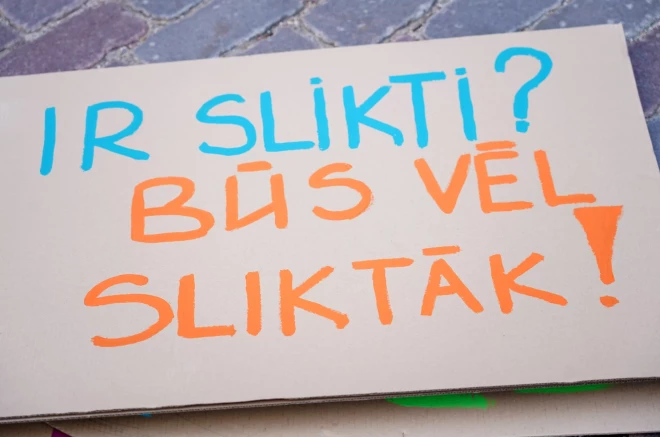 IR SLIKTI?
BŪS VĒL
SLIKTĀK!